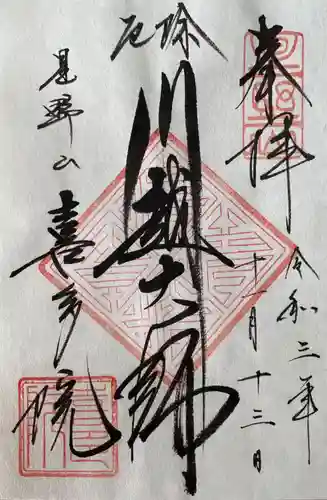 奉拝
令和三年
十一月十三日
厄除
川越大師
星野山
喜多院